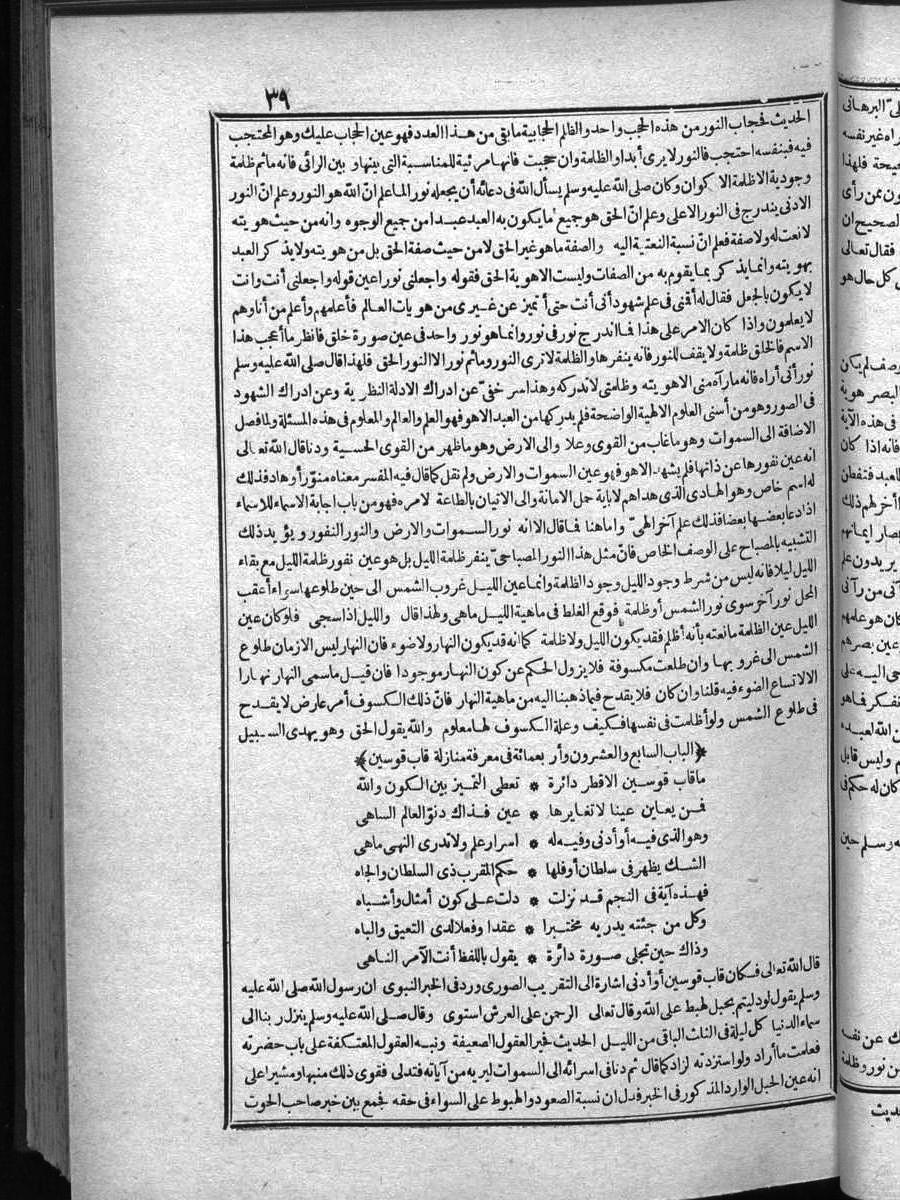 ٣٩
الحديث فحجاب النور من هذه الحجب واحد والظلم الحجابية ما بقي من هذا العدد فهو عين الحجاب عليك وهو المحتجب
فيه فبنفسه احتجب فالنور لا يرى أبدا والظلمة وان حجبت فانها مرئية للمناسبة التي بينها وبين الرائي فانه ما ثم ظلمة
وجودية الا ظلمة الاكوان وكان صلى الله عليه وسلم يسأل الله في دعائه أن يجعله نورا لما علم انّ الله هو النور وعلم انّ النور
الادنى يندرج في النور الاعلى وعلم انّ الحق هو جميع ما يكون به العبد عبدا من جميع الوجوه وانه من حيث هويته
لا نعت له ولا صفة فعلم انّ نسبة النعتية اليه والصفة ما هو غير الحق لا من حيث صفة الحق بل من هويته ولا يذكر العبد
بهويته وانما يذكر بما يقوم به من الصفات وليست الا هوية الحق فقوله واجعلني نورا عين قوله واجعلني أنت وأنت
لا يكون بالجعل فقال له أقني في علم شهود أني أنت حتى أتميز عن غيري من هويات العالم فأعلمهم وأعلم من أنا وهم
لا يعلمون واذا كان الامر على هذا فما اندرج نور في نور وانما هو نور واحد في عين صورة خلق فانظر ما أعجب هذا
الاسم فالخلق ظلمة ولا يقف للنور فانه ينفرها والظلمة لا ترى النور وما ثم نور الا النور الحق فلهذا قال صلى الله عليه وسلم
نور أنى أراه فانه ما رآه مني الا هويته وظلمتي لا تدركه وهذا سر خفيّ عن ادراك الادلة النظرية وعن ادراك الشهود
في الصور وهو من أسنى العلوم الالهية الواضحة فلم يدركها من العبد الا هو فهو العلم والعالم والمعلوم في هذه المسئلة ولما فصل
الاضافة الى السموات وهو ما غاب من القوى وعلا والى الارض وهو ما ظهر من القوى الحسية ودنا قال الله تعالى
انه عين نفورها عن ذاتها فلم يشهد الا هو فهو عين السموات والارض ولم نقل كما قال فيه المفسر معناه منوّر أو هاد فذلك
له اسم خاص وهو الهادي الذي هداهم لاباية حمل الامانة والى الاتيان بالطاعة لامره فهو من باب اجابة الاسماء للاسماء
اذا دعا بعضها بعضا فذلك علم آخر الهيّ وأما هنا فما قال الا انه نور السموات والارض والنور النفور ويؤيد ذلك
التشبيه بالمصباح على الوصف الخاص فانّ مثل هذا النور المصباحيّ ينفر ظلمة الليل بل هو عين نفور ظلمة الليل مع بقاء
الليل ليلا فانه ليس من شرط وجود الليل وجود الظلمة وانما عين الليل غروب الشمس الى حين طلوعها سواء أعقب
المحل نور آخر سوى نور الشمس أو ظلمة فوقع الغلط في ماهية الليل ما هي ولهذا قال والليل اذا سجى فلو كان عين
الليل عين الظلمة ما نعته بأنه أظلم فقد يكون الليل ولا ظلمة كما انه قد يكون النهار ولا ضوء فان النهار ليس الا زمان طلوع
الشمس الى غروبها وان طلعت مكسوفة فلا يزول الحكم عن كون النهار موجودا فان قيل ما سمى النهار نهارا
الا لاتساع الضوء فيه قلنا وان كان فلا يقدح فيما ذهبنا اليه من ماهية النهار فانّ ذلك الكسوف أمر عارض لا يقدح
في طلوع الشمس ولو أظلمت في نفسها فكيف وعلة الكسوف لها معلوم والله يقول الحق وهو يهدى السبيل
﴿الباب السابع والعشرون وأربعمائة في معرفة منازلة قاب قوسين﴾
ما قاب قوسين الا قطر دائرة * تعطى التميز بين الكون والله
فمن يعاين عينا لا تغايرها * عين فذاك دنوّ العالم الساهي
وهو الذي فيه أو أدنى وفيه له * اسرار علم ولا تدرى النهى ما هي
الشك يظهر في سلطان أو فلها * حكم المقرب ذي السلطان والجاه
فهذه آية في النجم قد نزلت * دلت على كون أمثال وأشباه
وكل من جئته يدريه مختبرا * عقدا وفعلا لدى التعيق والباه
وذاك حين تجلى صورة دائرة * يقول باللفظ أنت الآمر الناهي
قال الله تعالى فكان قاب قوسين أو أدنى اشارة الى التقريب الصوري ورد في الخبر النبوي ان رسول الله صلى الله عليه
وسلم يقول لو دليتم بحبل لهبط على الله وقال تعالى الرحمن على العرش استوى وقال صلى الله عليه وسلم ينزل ربنا الى
سماء الدنيا كل ليلة في الثلث الباقي من الليل الحديث فحير العقول الضعيفة ونبه العقول المعتكفة على باب حضرته
فعلمت ما أراد ولو استزدته لزاد كما قال ثم دنا في اسرائه الى السموات ليريه من آياته فتدلى فقوى ذلك منبها ومشيرا على
انه عين الحبل الوارد المذكور في الخبر فدل ان نسبة الصعود والهبوط على السواء في حقه فجمع بين خبر صاحب الحوت